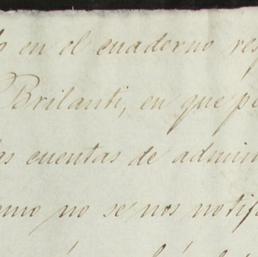 en el cuaderno res
Brilanti, en que p
as cuentas de admin
omo no se nos notif